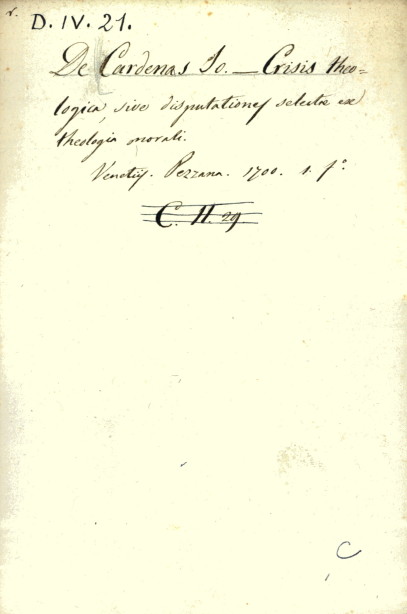 v.
D. IV. 21.
De Cardenas Jo. — Crisis theo=
logica, sive disputationes selectæ ex
theologia morali.
Venetiis. Pezzana. 1700. 1. fº.
C. II. 29
C